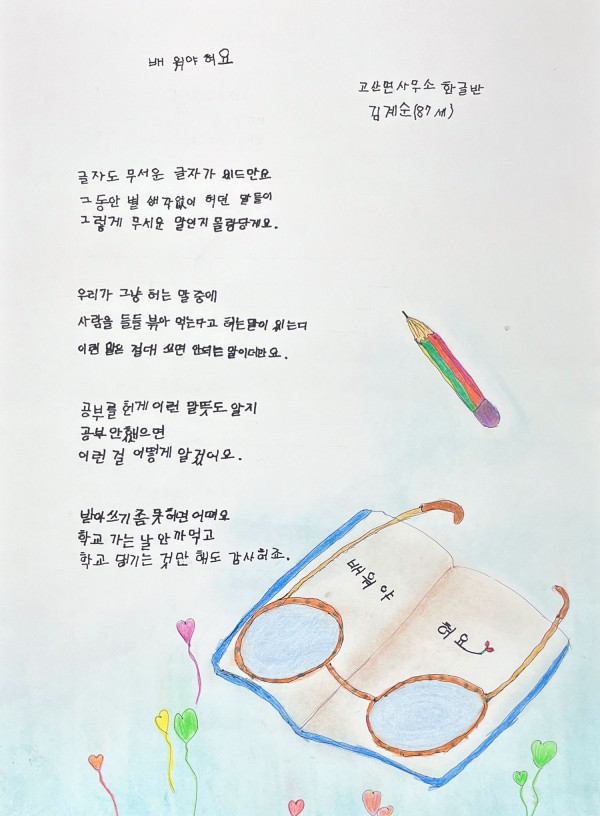 배 워야 허요
고산면사무소 한글반
김계순(87세)
글자도 무서운 글자가 있드만요
그동안 별 생각없이 허던 말들이
그렇게 무서운 말인지 몰랐당게요.
우리가 그냥 허는 말 중에
사람을 들들 볶아 먹는다고 허는말이 있는디
이런 말은 절대 쓰면 안되는 말이더만요.
공부를 헌게 이런 말뜻도 알지
공부안했으면
이런 걸 어떻게 알겄어요.
받아쓰기 좀 못하면 어떠요
학교 가는 날 안 까먹고
학교 댕기는 것만 해도 감사허죠.
배워야
허요